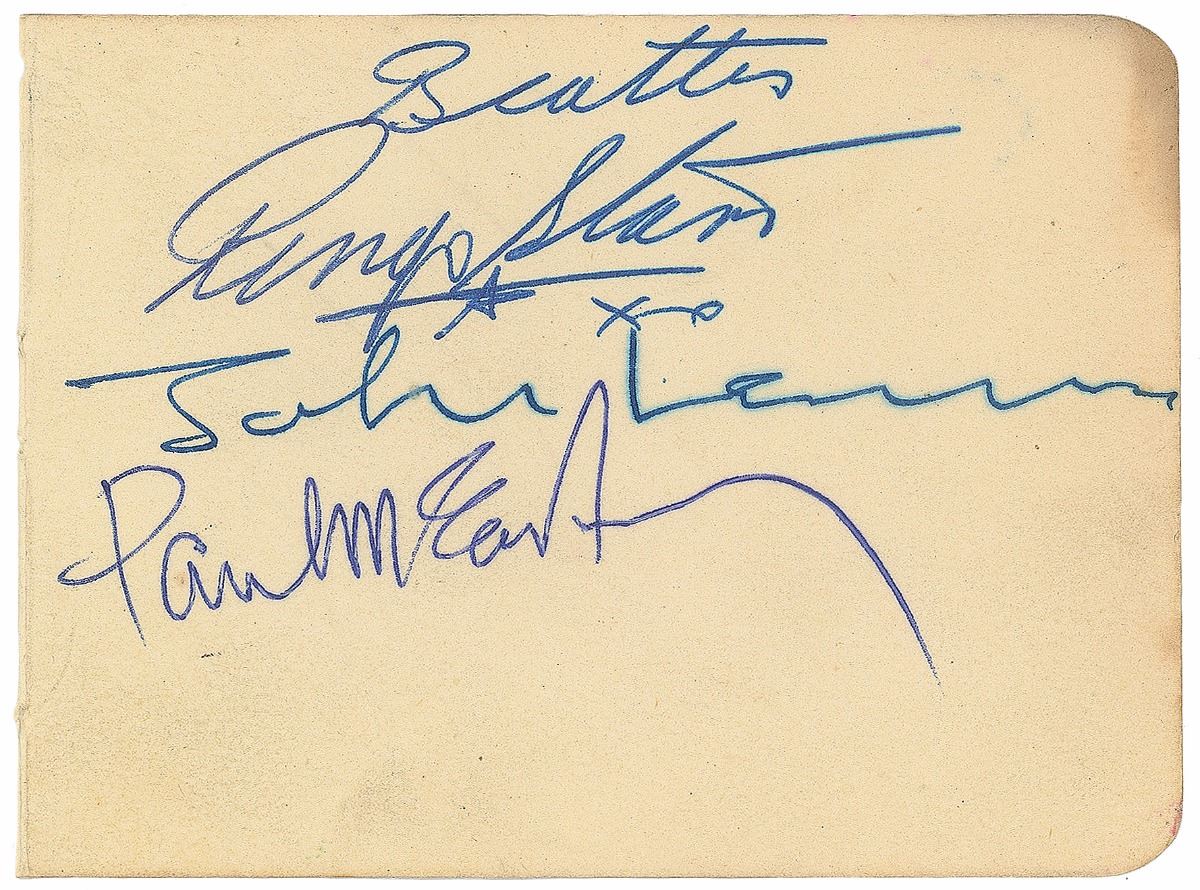 Beatles
Ringo Starr
xo
John Lennon
Paul McCartney